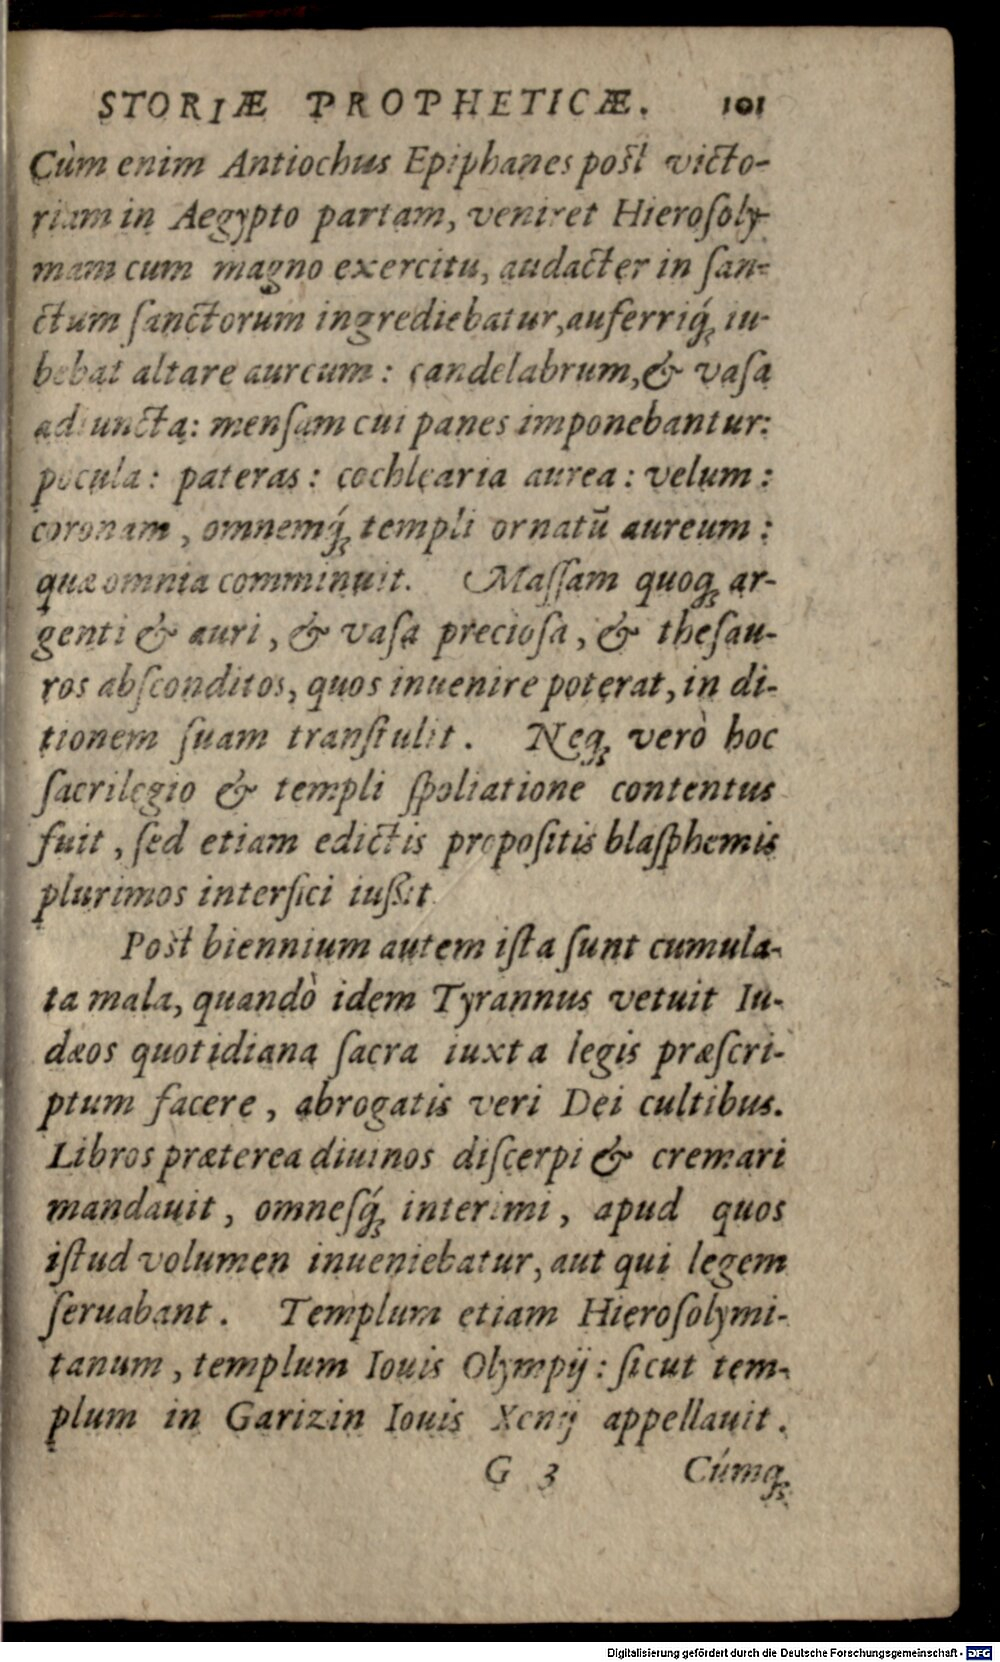 STORIÆ PROPHETICÆ. 101
Cùm enim Antiochus Epiphanes post victo-
riam in Aegypto partam, veniret Hierosoly-
mam cum magno exercitu, audacter in san-
ctum sanctorum ingrediebatur, auferriq́ue iu-
bebat altare aureum: candelabrum, & vasa
adiuncta: mensam cui panes imponebantur:
pocula: pateras: cochlearia aurea: velum:
coronam, omnemq́; templi ornatū aureum:
quæ omnia comminuit. Massam quoq; ar-
genti & auri, & vasa preciosa, & thesau-
ros absconditos, quos inuenire poterat, in di-
tionem suam transtulit. Neq; verò hoc
sacrilegio & templi spoliatione contentus
fuit, sed etiam edictis propositis blasphemis
plurimos interfici iußit.
Post biennium autem ista sunt cumula-
ta mala, quandò idem Tyrannus vetuit Iu-
dæos quotidiana sacra iuxta legis præscri-
ptum facere, abrogatis veri Dei cultibus.
Libros præterea diuinos discerpi & cremari
mandauit, omnesq́; interimi, apud quos
istud volumen inueniebatur, aut qui legem
seruabant. Templum etiam Hierosolymi-
tanum, templum Iouis Olympij: sicut tem-
plum in Garizin Iouis Xenij appellauit.
G 3 Cúmq;
Digitalisierung gefördert durch die Deutsche Forschungsgemeinschaft - DFG